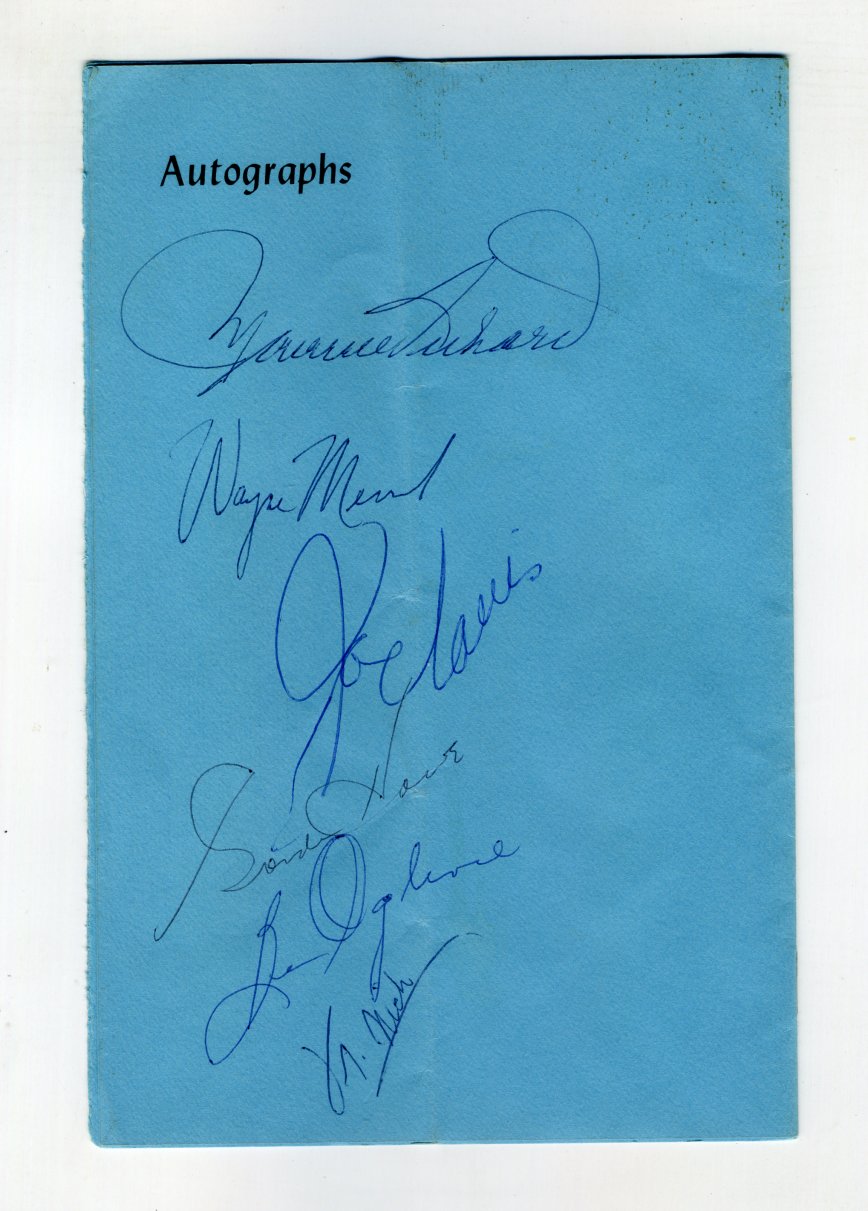 Autographs
Maurice Richard
Wayne Merrick
Joe Louis
Gordie Howe
Ben Oglivie